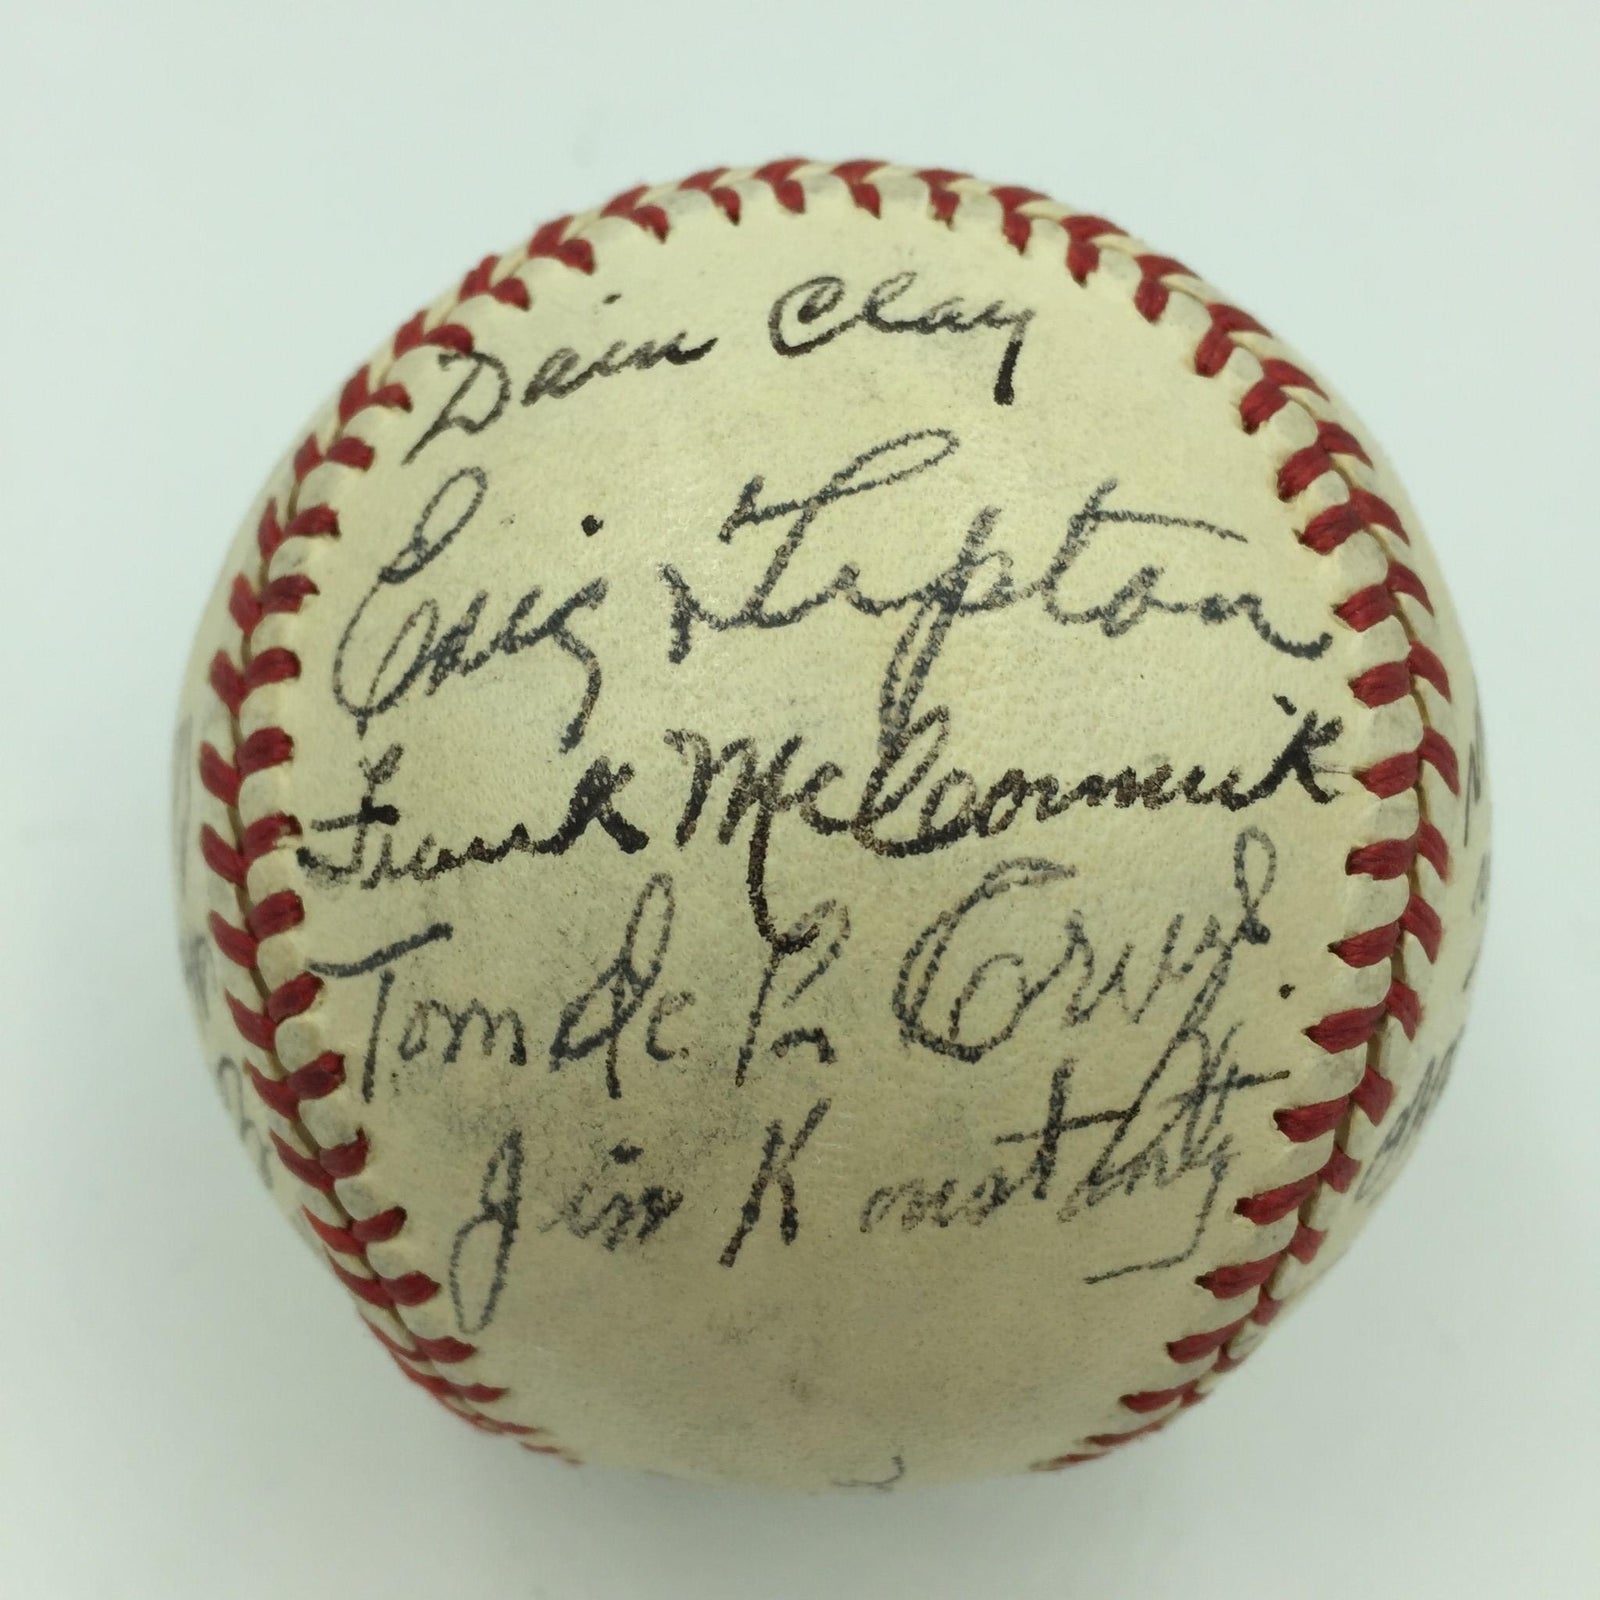 Dain Clay
Eric Tipton
Frank McCormick
Tom De La Cruz
Jim Konstanty